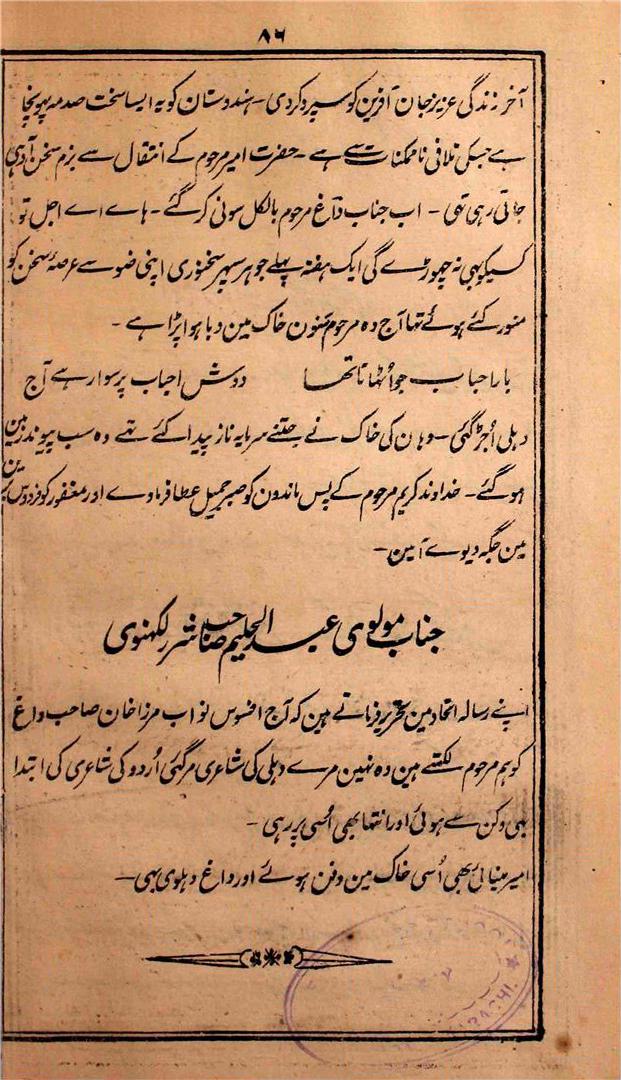 ۸۶
آخر زندگی عزیز جان آفرین کو سپرد کردی - ہندوستان کو یہ ایسا سخت صدمہ پہونچا
ہے جسکی تلافی ناممکنات سے ہے - حضرت امیر مرحوم کے انتقال سے بزم سخن آدہی
جاتی رہی تھی - اب جناب داغ مرحوم بالکل سونی کر گئے - ہاے اے اجل تو
کسیکو بھی نہ چھوڑے گی ایک ہفتہ پہلے جو ہر سپہر سخنوری اپنی ضو سے عرصۂ سخن کو
منور کئے ہوئے تھا آج وہ مرحوم منون خاک مین دبا ہوا پڑا ہے -
بار احباب جو اُٹھاتا تھا دوش احباب پر سوار ہے آج
دہلی اُجڑ گئی - وہان کی خاک نے جتنے سرمایہ ناز پیدا کئے تھے وہ سب پیوند زمین
ہو گئے - خداوند کریم مرحوم کے پس ماندون کو صبر جمیل عطا فرماوے اور مغفور کو فردوس برین
مین جگہ دیوے آمین -
جناب مولوی عبد الحلیم صاحب شرر لکھنوی
اپنے رسالہ اتحاد مین تحریر فرماتے ہین کہ آج افسوس نواب مرزا خان صاحب داغ
کو ہم مرحوم لکھتے ہین وہ نہین مرے دہلی کی شاعری مر گئی اُردو کی شاعری کی ابتدا
بھی دکن سے ہوئی اور انتہا بھی اُسی پر رہی -
امیر مینائی بھی اُسی خاک مین دفن ہوئے اور داغ دہلوی بہی -